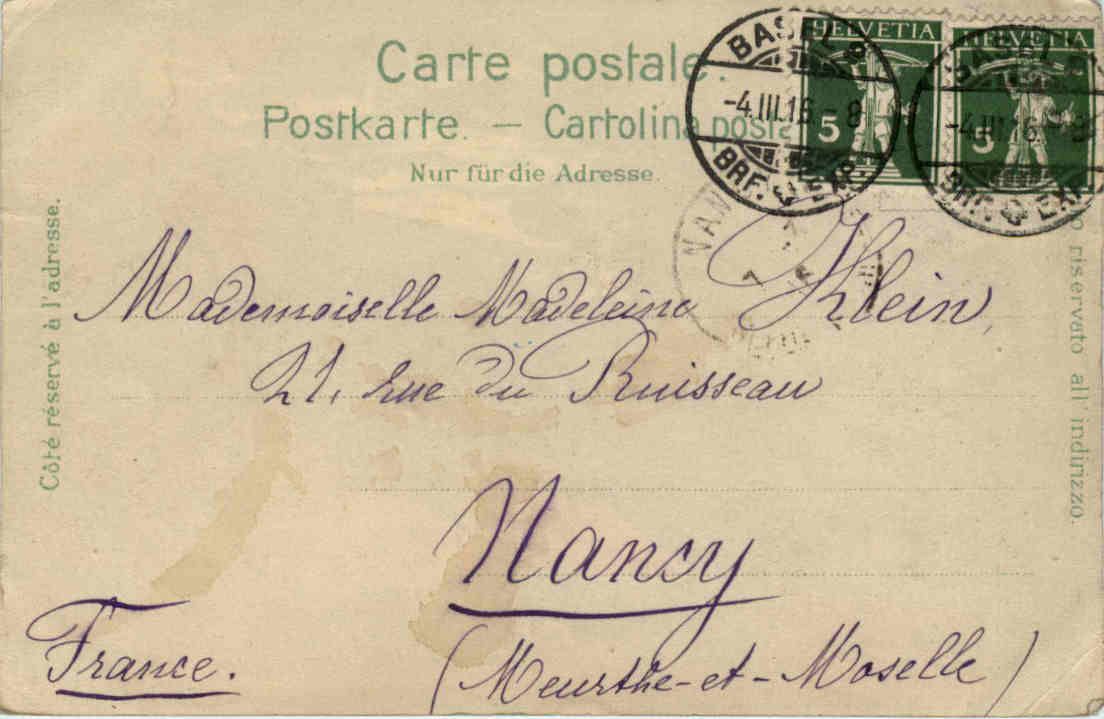 Carte postale.
Postkarte. — Cartolina posta
Nur für die Adresse.
HELVETIA
5
HELVETIA
5
BASEL 2
-4.III.16.-8
BRF. EXP.
BASEL
-4.III.16.-8
BRF. EXP.
NAN
Côté réservé à l'adresse.
o riservato all'indirizzo.
Mademoiselle Madeleine Klein,
21, rue du Ruisseau
Nancy
(Meurthe-et-Moselle)
France.